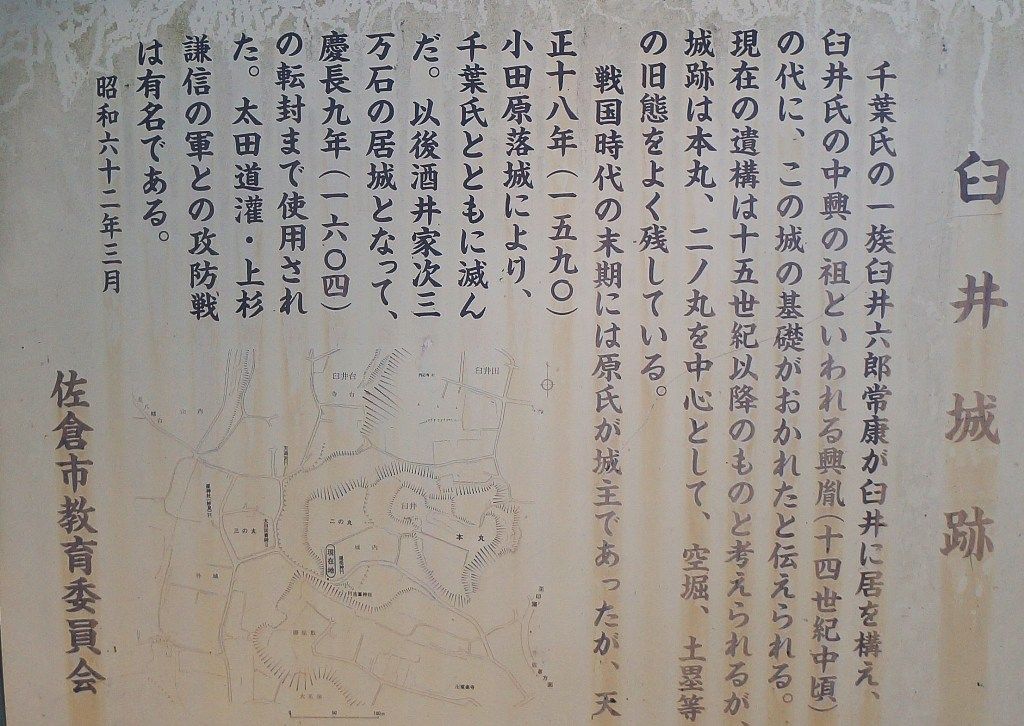 臼井城跡
千葉氏の一族臼井六郎常康が臼井に居を構え、
臼井氏の中興の祖といわれる興胤(十四世紀中頃)
の代に、この城の基礎がおかれたと伝えられる。
現在の遺構は十五世紀以降のものと考えられるが、
城跡は本丸、二ノ丸を中心として、空堀、土塁等
の旧態をよく残している。
戦国時代の末期には原氏が城主であったが、天
正十八年(一五九〇)
小田原落城により、
千葉氏とともに滅ん
だ。以後酒井家次三
万石の居城となって、
慶長九年(一六〇四)
の転封まで使用され
た。太田道灌・上杉
謙信の軍との攻防戦
は有名である。
昭和六十二年三月
佐倉市教育委員会
臼井田
臼井台
臼井
本丸
二の丸
城内
三の丸
現在地
外城
0 50 100m